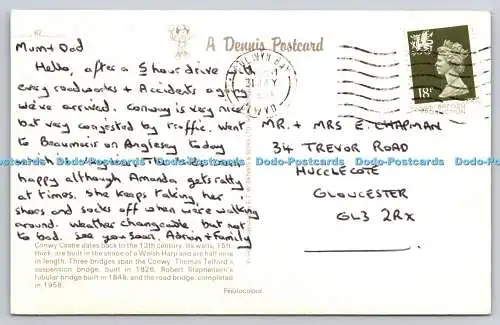 A Dennis Postcard
Mum + Dad
Hello, after a 5 hour drive with
every roadworks + Accidents
we've arrived. Conway is very nice
but very congested by traffic. Went
to Beaumaris on Anglesey today
happy although Amanda gets ratty
at times. She keeps taking her
shoes and socks off when we're walking
around. Weather changeable but not
to bad. See you soon. Adrian + Family
Conwy Castle dates back to the 13th century. Its walls, 15ft.
thick, are built in the shape of a Welsh Harp and are half mile
in length. Three bridges span the Conwy. Thomas Telford's
suspension bridge, built in 1826, Robert Stephenson's
tubular bridge built in 1848, and the road bridge, completed
in 1958.
18P
MR. + MRS E. CHAPMAN
34 TREVOR ROAD
HUCCLECOTE
GLOUCESTER
GL3 2RX
Dodo-Postcards Dodo-Postcards Dodo-Postcards Dodo-Postcards